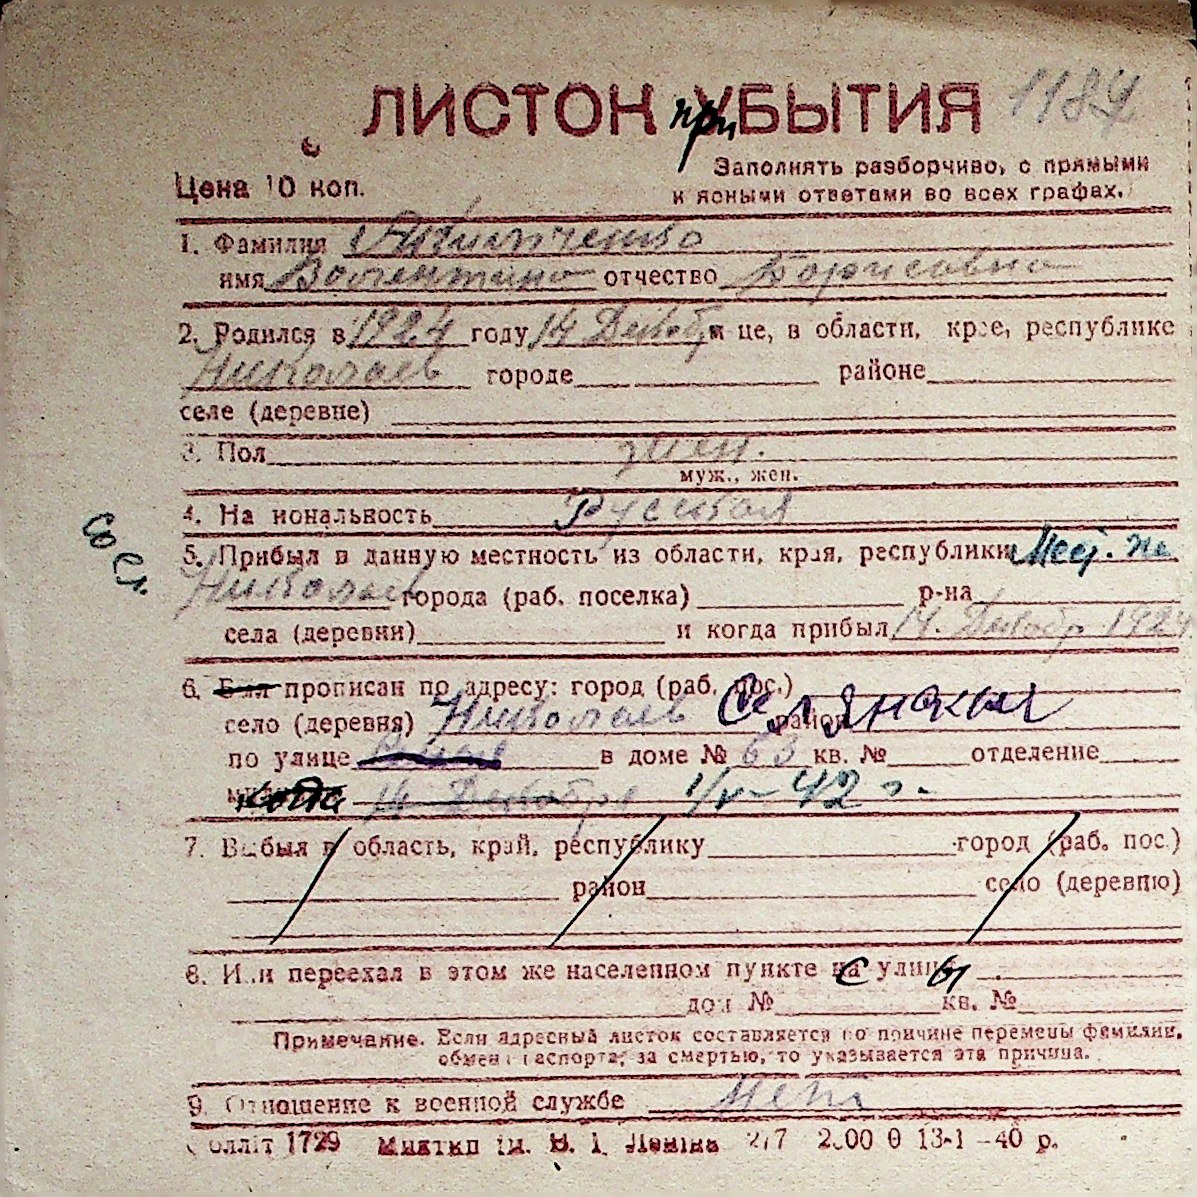 ЛИСТОК приБЫТИЯ 1184
Заполнять разборчиво, с прямыми
Цена 10 коп.
и ясными ответами во всех графах.
1. Фамилия
имя Валентина отчество Борисовна
2. Родился в 1924 году 14 Декабря м це, в области, крае, республике
Николаев городе районе
селе (деревне)
3. Пол жен.
муж., жен.
4. На иональность Русская
5. Прибыл в данную местность из области, края, республики
Николаев города (раб. поселка) р-на
села (деревни) и когда прибыл 14. Декабр 1924
6. Был прописан по адресу: город (раб. пос.)
село (деревня) Николаев район
по улице в доме № 63 кв. № отделение
когда 14 Декабря 1/V-42 г.
7. Выбыл в область, край, республику город (раб. пос.)
район село (деревню)
8. Или переехал в этом же населенном пункте с улицы
дом № кв. №
Примечание. Если адресный листок составляется по причине перемены фамилии,
обмена паспорта, за смертью, то указывается эта причина.
9. Отношение к военной службе Нет
1729 В. І. Леніна 2/7 13-1-40 р.